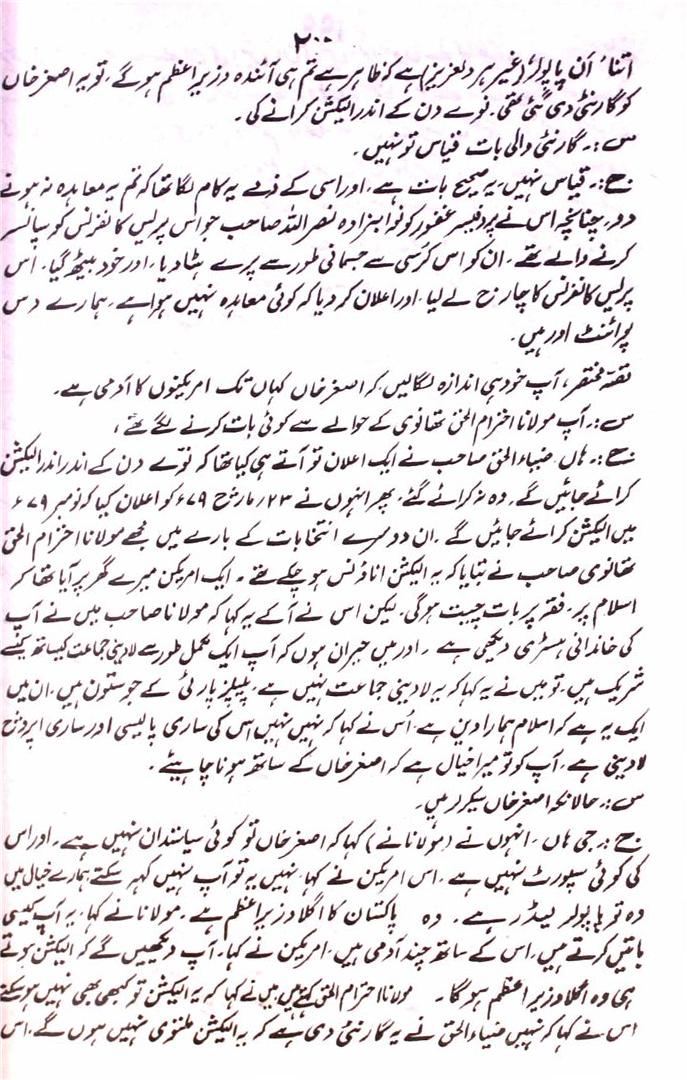 ۲۰۰
اتنا، اَن پاپولر (غیر ہر دلعزیز) ہے کہ ظاہر ہے تم ہی آئندہ وزیراعظم ہو گے، تو یہ اصغر خاں
کو گارنٹی دی گئی تھی، نوے دن کے اندر الیکشن کرانے کی۔
س:۔ گارنٹی والی بات قیاس تو نہیں۔
ج:۔ قیاس نہیں، یہ صحیح بات ہے، اور اسی کے ذمے یہ کام لگا تھا کہ تم یہ معاہدہ نہ ہونے
دو، چنانچہ اس نے پروفیسر غفور کو نوابزادہ نصر اللہ صاحب جو اس پریس کانفرنس کو سپانسر
کرنے والے تھے، ان کو اس کرسی سے جسمانی طور سے پرے ہٹا دیا، اور خود بیٹھ گیا، اس
پریس کانفرنس کا چارج لے لیا، اور اعلان کر دیا کہ کوئی معاہدہ نہیں ہوا ہے، ہمارے دس
پوائنٹ اور ہیں۔
قصّہ مختصر، آپ خود ہی اندازہ لگا لیں کہ اصغر خاں کہاں تک امریکنوں کا آدمی ہے۔
س:۔ آپ مولانا احترام الحق تھانوی کے حوالے سے کوئی بات کرنے لگے تھے،
ج:۔ ہاں، ضیاء الحق صاحب نے ایک اعلان تو آتے ہی کیا تھا کہ نوّے دن کے اندر اندر الیکشن
کرائے جائیں گے، وہ نہ کرائے گئے، پھر انہوں نے ۲۳، مارچ ۷۹ء کو اعلان کیا کہ نومبر ۷۹ء
میں الیکشن کرائے جائیں گے، ان دوسرے انتخابات کے بارے میں مجھے مولانا احترام الحق
تھانوی صاحب نے بتایا کہ یہ الیکشن اناؤنس ہو چکے تھے۔ ایک امریکن میرے گھر پر آیا تھا کہ
اسلام پر، فقہ پر بات چیت ہو گی، لیکن اس نے آ کے یہ کہا کہ مولانا صاحب میں نے آپ
کی خاندانی ہسٹری دیکھی ہے، اور میں حیران ہوں کہ آپ ایک مکمل طور سے لادینی جماعت کیساتھ کیسے
شریک ہیں، تو میں نے یہ کہا کہ یہ لادینی جماعت نہیں ہے، پیپلز پارٹی کے جو ستون ہیں، ان میں
ایک یہ ہے کہ اسلام ہمارا دین ہے، اس نے کہا کہ نہیں نہیں اس کی ساری پالیسی اور ساری اپروچ
لادینی ہے، آپ کو تو میرا خیال ہے کہ اصغر خاں کے ساتھ ہونا چاہیئے۔
س:۔ حالانکہ اصغر خاں سیکولر ہیں۔
ج:۔ جی ہاں، انہوں نے (مولانا نے) کہا کہ اصغر خاں تو کوئی سیاستدان نہیں ہے، اور اس
کی کوئی سپورٹ نہیں ہے، اس امریکن نے کہا، نہیں یہ تو آپ نہیں کہہ سکتے، ہمارے خیال میں
وہ تو پاپولر لیڈر ہے، وہ پاکستان کا اگلا وزیراعظم ہے، مولانا نے کہا، یہ آپ کیسی
باتیں کرتے ہیں، اس کے ساتھ چند آدمی ہیں، امریکن نے کہا، آپ دیکھیں گے کہ الیکشن ہوتے
ہی وہ اگلا وزیراعظم ہو گا۔ مولانا احترام الحق کہتے ہیں، میں نے کہا کہ یہ الیکشن تو کبھی بھی نہیں ہو سکتے
اس نے کہا کہ نہیں ضیاء الحق نے یہ گارنٹی دی ہے کہ یہ الیکشن ملتوی نہیں ہوں گے، اس